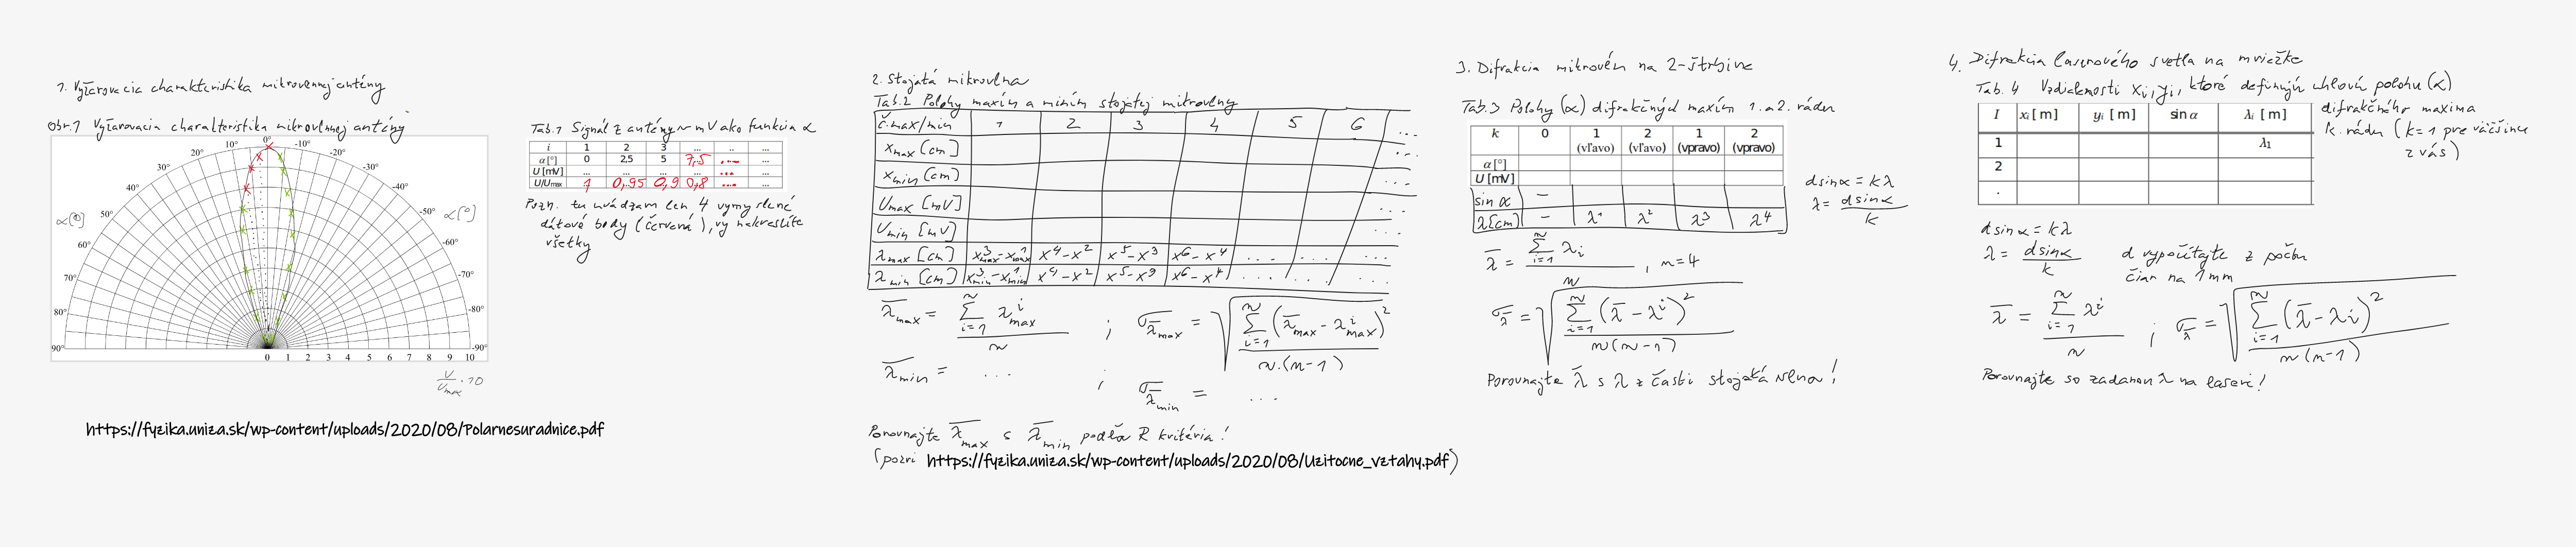 1. Vyžarovacia charakteristika mikrovlnnej antény
Obr.1 Vyžarovacia charakteristika mikrovlnnej antény
0°
10° -10°
20° -20°
30° -30°
40° -40°
50° -50°
60° -60°
70° -70°
80° -80°
90° -90°
α[°] α[°]
0 1 2 3 4 5 6 7 8 9 10
U/Umax · 10
https://fyzika.uniza.sk/wp-content/uploads/2020/08/Polarnesuradnice.pdf
Tab.1 Signál z antény v mV ako funkcia α
i 1 2 3 ... .. ...
α[°] 0 2,5 5 7,5 .... ...
U[mV] ... ... ... ... ...
U/Umax 1 0,95 0,9 0,8 .... ...
Pozn. tu uvádzam len 4 vymyslené
dátové body (červená), vy nakreslíte
všetky
2. Stojatá mikrovlna
Tab.2 Polohy maxím a miním stojatej mikrovlny
č.max/min 1 2 3 4 5 6 ...
xmax [cm] ...
xmin [cm] ...
Umax [mV] ...
Umin [mV] ...
λmax [cm] x³max-x¹max x⁴-x² x⁵-x³ x⁶-x⁴ ... ... ...
λmin [cm] x³min-x¹min x⁴-x² x⁵-x³ x⁶-x⁴ ... ... ...
λ̄max = Σ(i=1)^n λ^i max / n ; σλ̄max = √(Σ(i=1)^n (λ̄max - λ^i max)² / n.(n-1))
λ̄min = ... ; σλ̄min = ...
Porovnajte λ̄max s λ̄min podľa R kritéria!
(pozri https://fyzika.uniza.sk/wp-content/uploads/2020/08/Uzitocne_vztahy.pdf)
3. Difrakcia mikrovĺn na 2-štrbine
Tab.3 Polohy (α) difrakčných maxím 1. a 2. rádu
k 0 1 2 1 2
(vľavo) (vľavo) (vpravo) (vpravo)
α[°]
U[mV]
sin α –
λ[cm] – λ¹ λ² λ³ λ⁴
d sinα = kλ
λ = d sinα / k
λ̄ = Σ(i=1)^n λi / n , n=4
σλ̄ = √(Σ(i=1)^n (λ̄ - λ^i)² / n(n-1))
Porovnajte λ̄ s λ z časti stojatá vlna!
4. Difrakcia laserového svetla na mriežke
Tab. 4 Vzdialenosti xi, yi, ktoré definujú uhlovú polohu (α)
difrakčného maxima
k. rádu (k=1 pre väčšinu
z vás)
I xi [m] yi [m] sin α λi [m]
1 λ1
2
.
d sinα = kλ
λ = d sinα / k
d vypočítajte z počtu
čiar na 1mm
λ̄ = Σ(i=1)^n λ^i / n ; σλ̄ = √(Σ(i=1)^n (λ̄ - λi)² / n(n-1))
Porovnajte so zadanou λ na laseri!